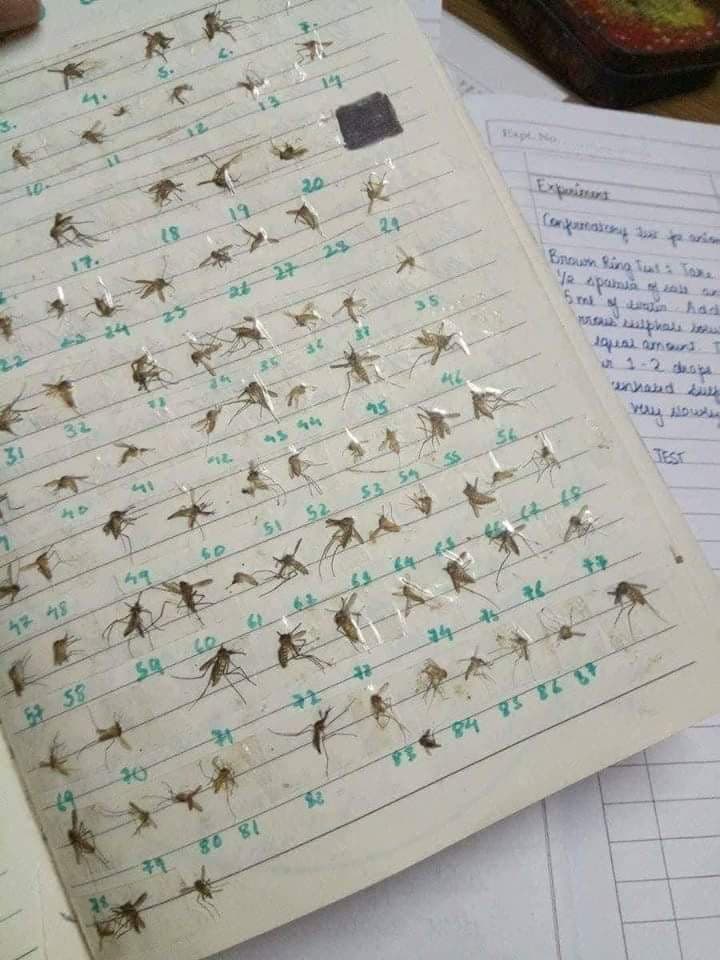 5. 6. 7.
3. 4.
10. 11 12 13 14
17. 18 19 20
22 23 24 25 26 27 28 29
31 32 33 34 35 36 37 35
40 41 42 43 44 45 46
47 48 49 50 51 52 53 54 55 56
57 58 59 60 61 62 63 64 65 66 67 68
69 70 71 72 73 74 75 76 77
78 79 80 81 82 83 84 85 86 87
Expt. No.
Experiment
Confirmatory test for
Brown Ring Test : Take
1/2 spatula of salt
5 ml of water. Add
sulphate
equal amount
1-2 drops
very slowly
TEST